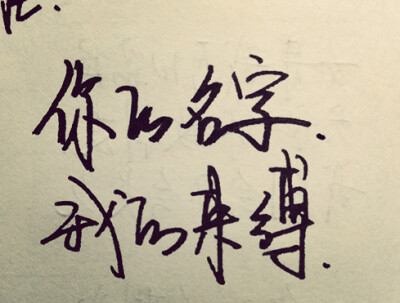 你的名字.
我的束缚.